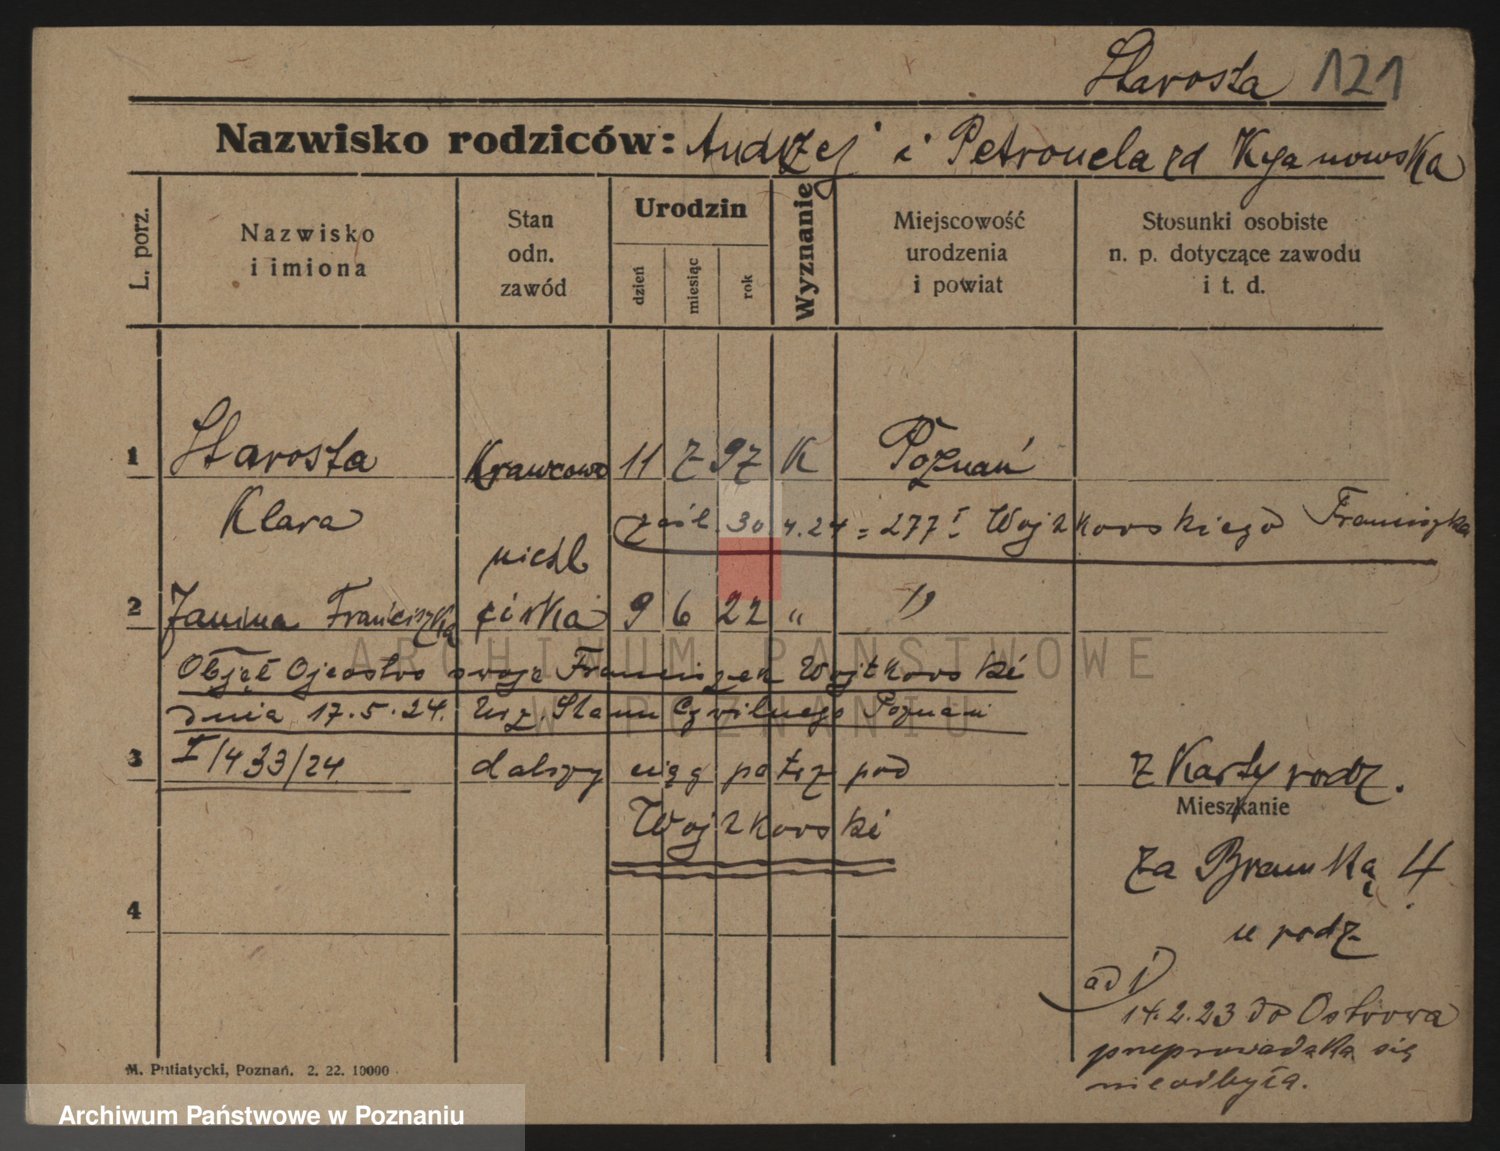 Starosta 121
Nazwisko rodziców: Andrzej i Petronela zd Kyanowska
L. porz.
Nazwisko
i imiona
Stan
odn.
zawód
Urodzin
dzień
miesiąc
rok
Wyznanie
Miejscowość
urodzenia
i powiat
Stosunki osobiste
n. p. dotyczące zawodu
i t. d.
1 Starosta Krawcowa 11 7 97 K Poznań
Klara
zaśl. 30.4.24 = 277 I Wojtkowskiego Franciszka
nieśl
2 Janina Franciszka córka 9 6 22 " "
Objął Ojcostwo swoje Franciszek Wojtkowski
dnia 17.5.24. Urz. Stanu Cywilnego Poznań
3 I/433/24 dalszy ciąg patrz pod
Wojtkowski
z Karty rodz.
Mieszkanie
za Bramką 4
u rodz
4
ad 1)
14.2.23 do Ostrowa
przeprowadzka się
nie odbyła.
M. Putiatycki, Poznań. 2. 22. 10000
ARCHIWUM PAŃSTWOWE
W POZNANIU
Archiwum Państwowe w Poznaniu